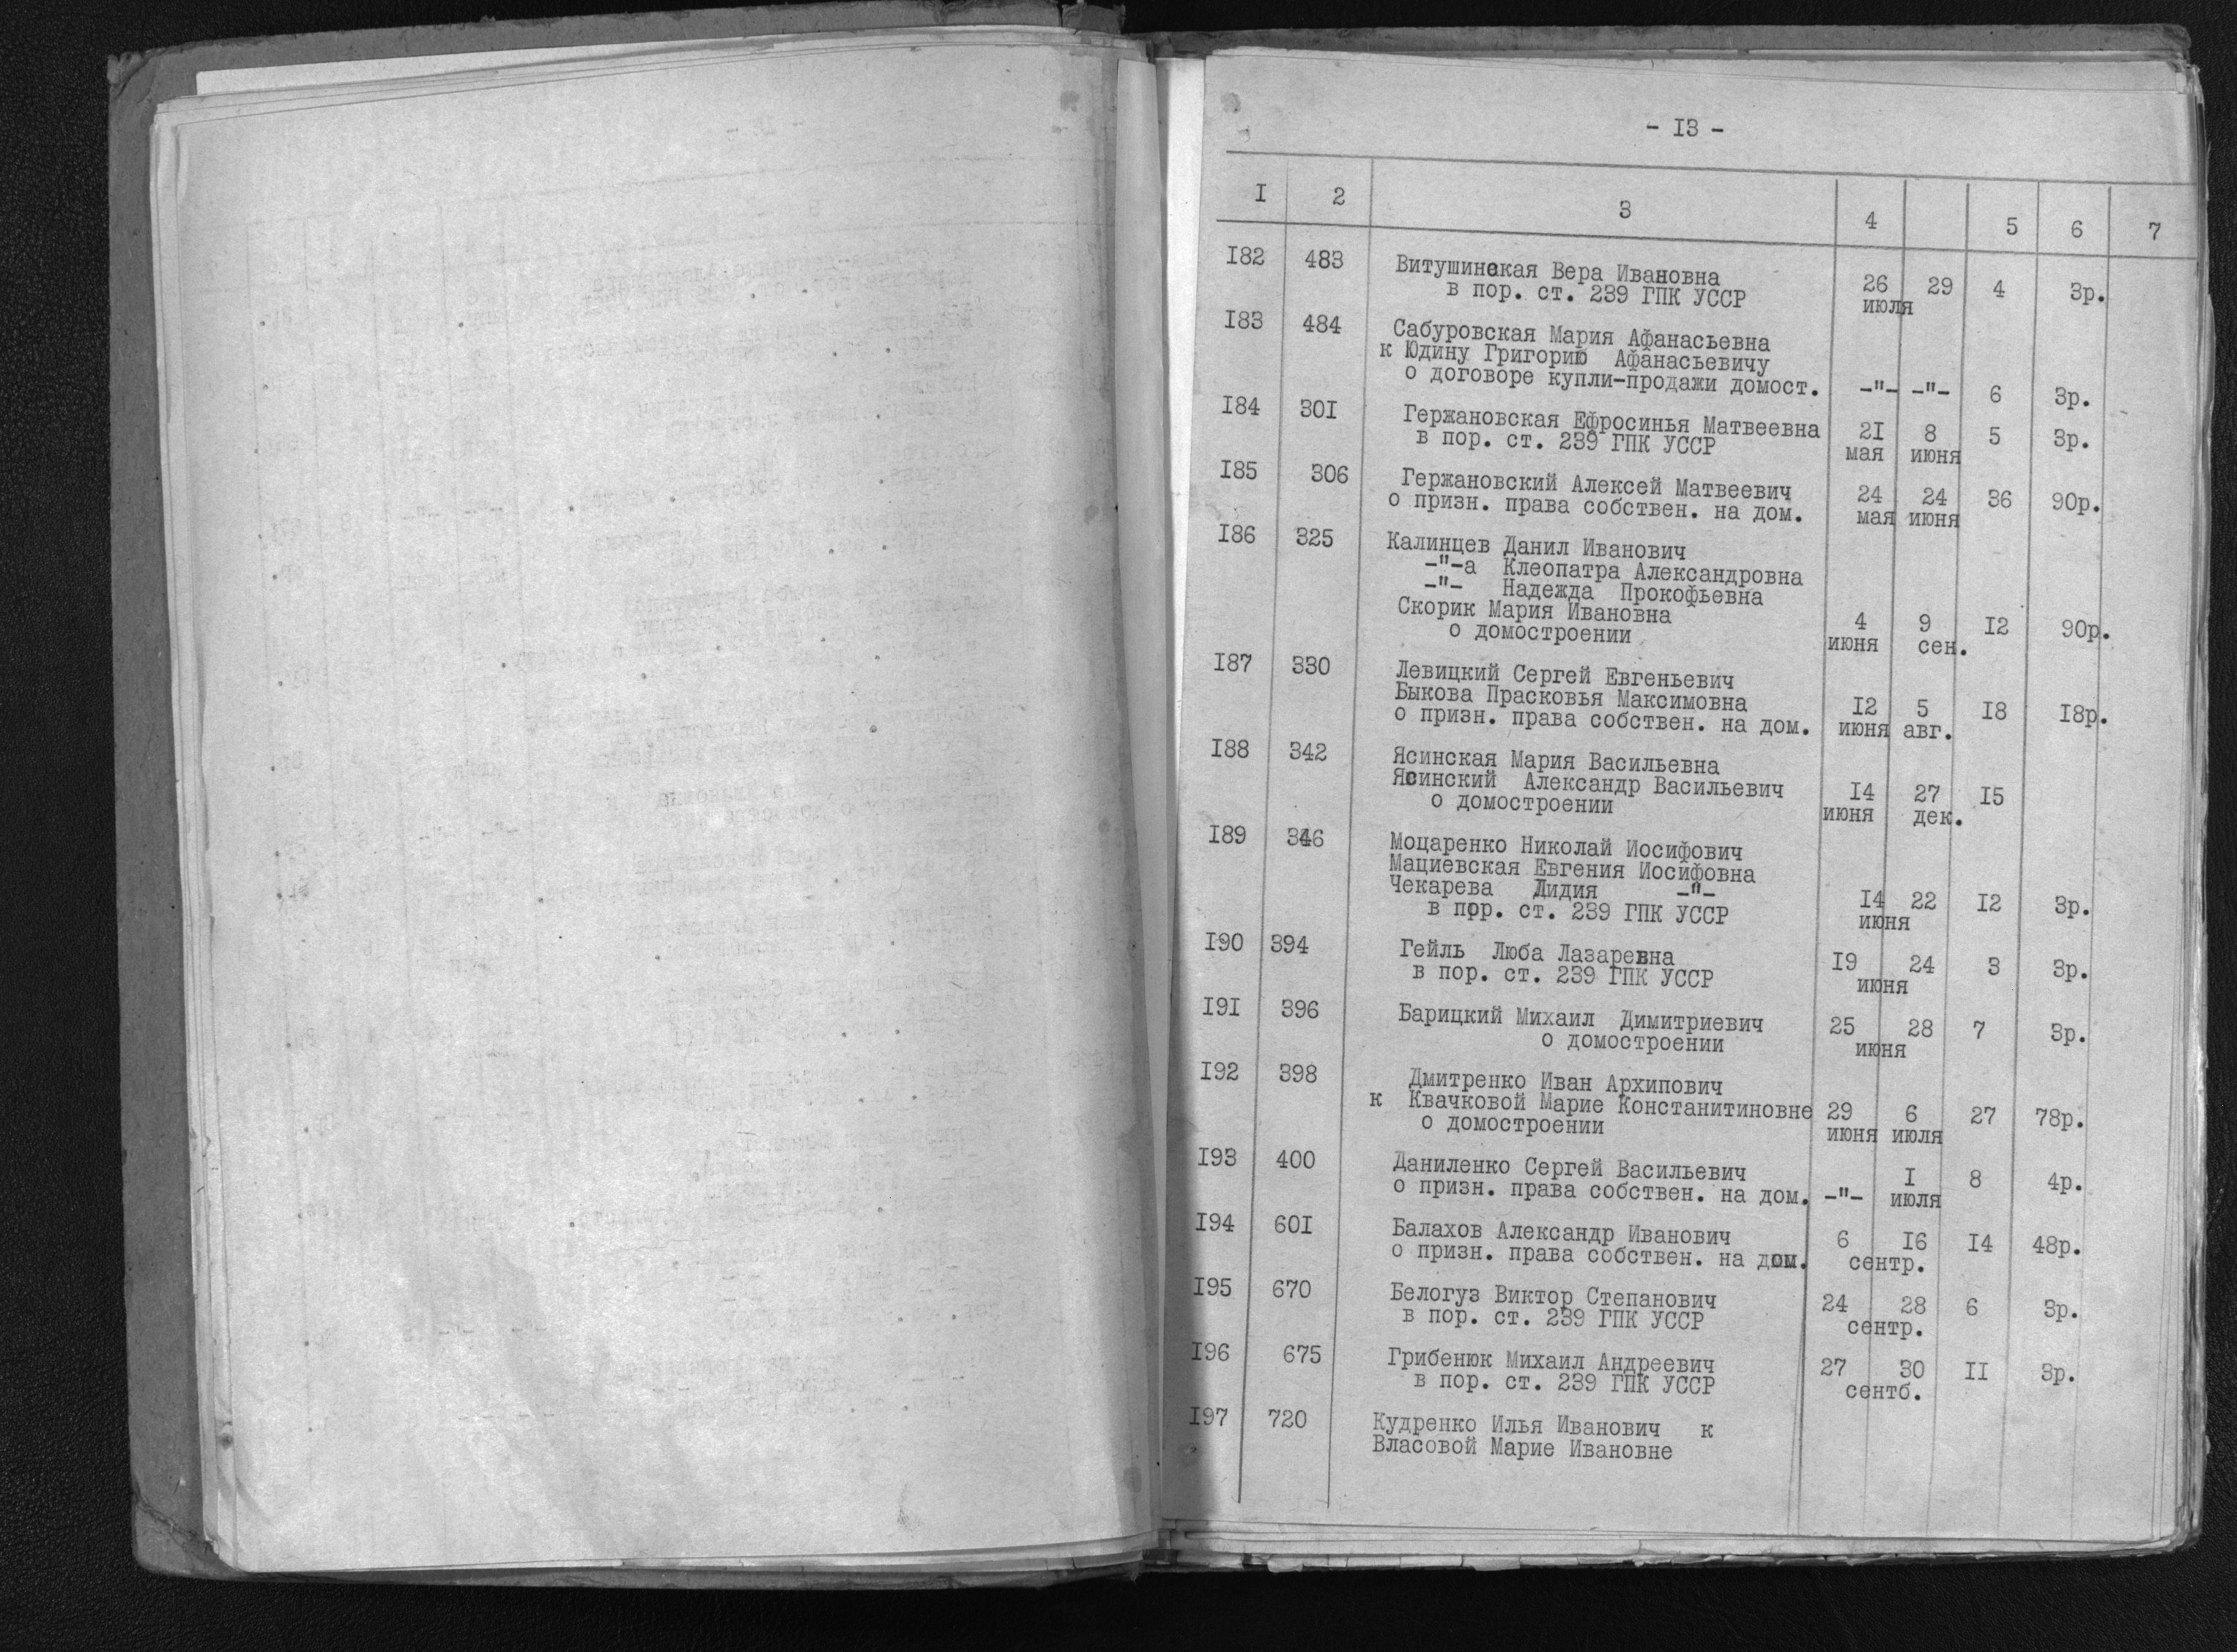 - I3 -
I 2 3 4 5 6 7
I82 483 Витушинская Вера Ивановна 26 29 4 3р.
в пор. ст. 239 ГПК УССР июля
I83 484 Сабуровская Мария Афанасьевна
к Юдину Григорию Афанасьевичу
о договоре купли-продажи домост. -"- -"- 6 3р.
I84 30I Гержановская Ефросинья Матвеевна 2I 8 5 3р.
в пор. ст. 239 ГПК УССР мая июня
I85 306 Гержановский Алексей Матвеевич 24 24 36 90р.
о призн. права собствен. на дом. мая июня
I86 325 Калинцев Данил Иванович
-"-а Клеопатра Александровна
-"- Надежда Прокофьевна
Скорик Мария Ивановна 4 9 I2 90р.
о домостроении июня сен.
I87 330 Левицкий Сергей Евгеньевич
Быкова Прасковья Максимовна I2 5 I8 I8р.
о призн. права собствен. на дом. июня авг.
I88 342 Ясинская Мария Васильевна
Ясинский Александр Васильевич I4 27 I5
о домостроении июня дек.
I89 346 Моцаренко Николай Иосифович
Мациевская Евгения Иосифовна
Чекарева Лидия -"- I4 22 I2 3р.
в пор. ст. 239 ГПК УССР июня
I90 394 Гейль Люба Лазаревна I9 24 3 3р.
в пор. ст. 239 ГПК УССР июня
I9I 396 Барицкий Михаил Димитриевич 25 28 7 3р.
о домостроении июня
I92 398 Дмитренко Иван Архипович
к Квачковой Марие Констанитиновне 29 6 27 78р.
о домостроении июня июля
I93 400 Даниленко Сергей Васильевич I 8 4р.
о призн. права собствен. на дом. -"- июля
I94 60I Балахов Александр Иванович 6 I6 I4 48р.
о призн. права собствен. на дом. сентр.
I95 670 Белогуз Виктор Степанович 24 28 6 3р.
в пор. ст. 239 ГПК УССР сентр.
I96 675 Грибенюк Михаил Андреевич 27 30 II 3р.
в пор. ст. 239 ГПК УССР сентб.
I97 720 Кудренко Илья Иванович к
Власовой Марие Ивановне